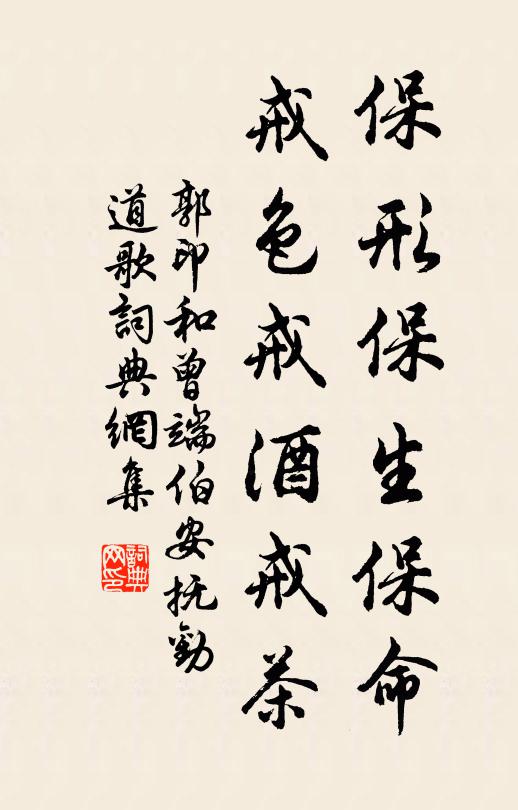 保形保生保命
戒色戒酒戒茶
郭印和曾端伯安抚勸
道歌詞典網集
詞典网印